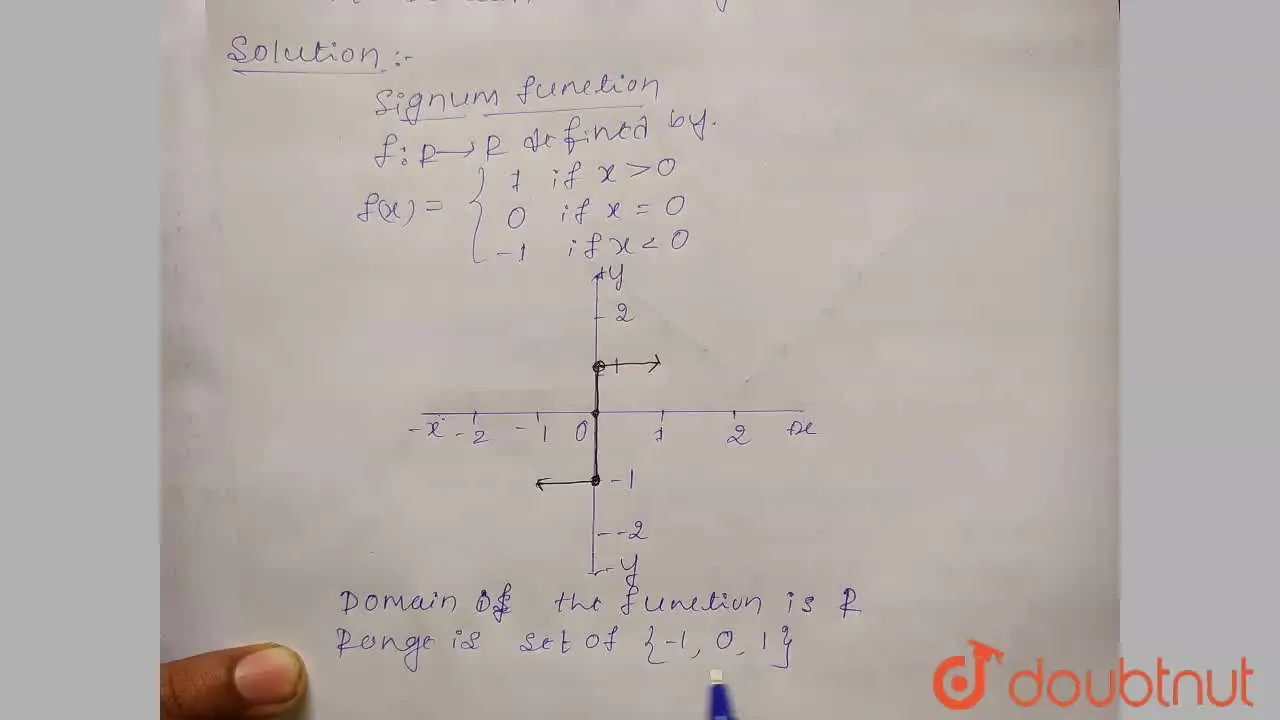 Solution :-
Signum function
f: R → R defined by.
f(x) = { 1 if x > 0
0 if x = 0
-1 if x < 0
+y
2
1
-x -2 -1 0 1 2 +x
-1
-2
-y
Domain of the function is R
Range is set of {-1, 0, 1}
doubtnut